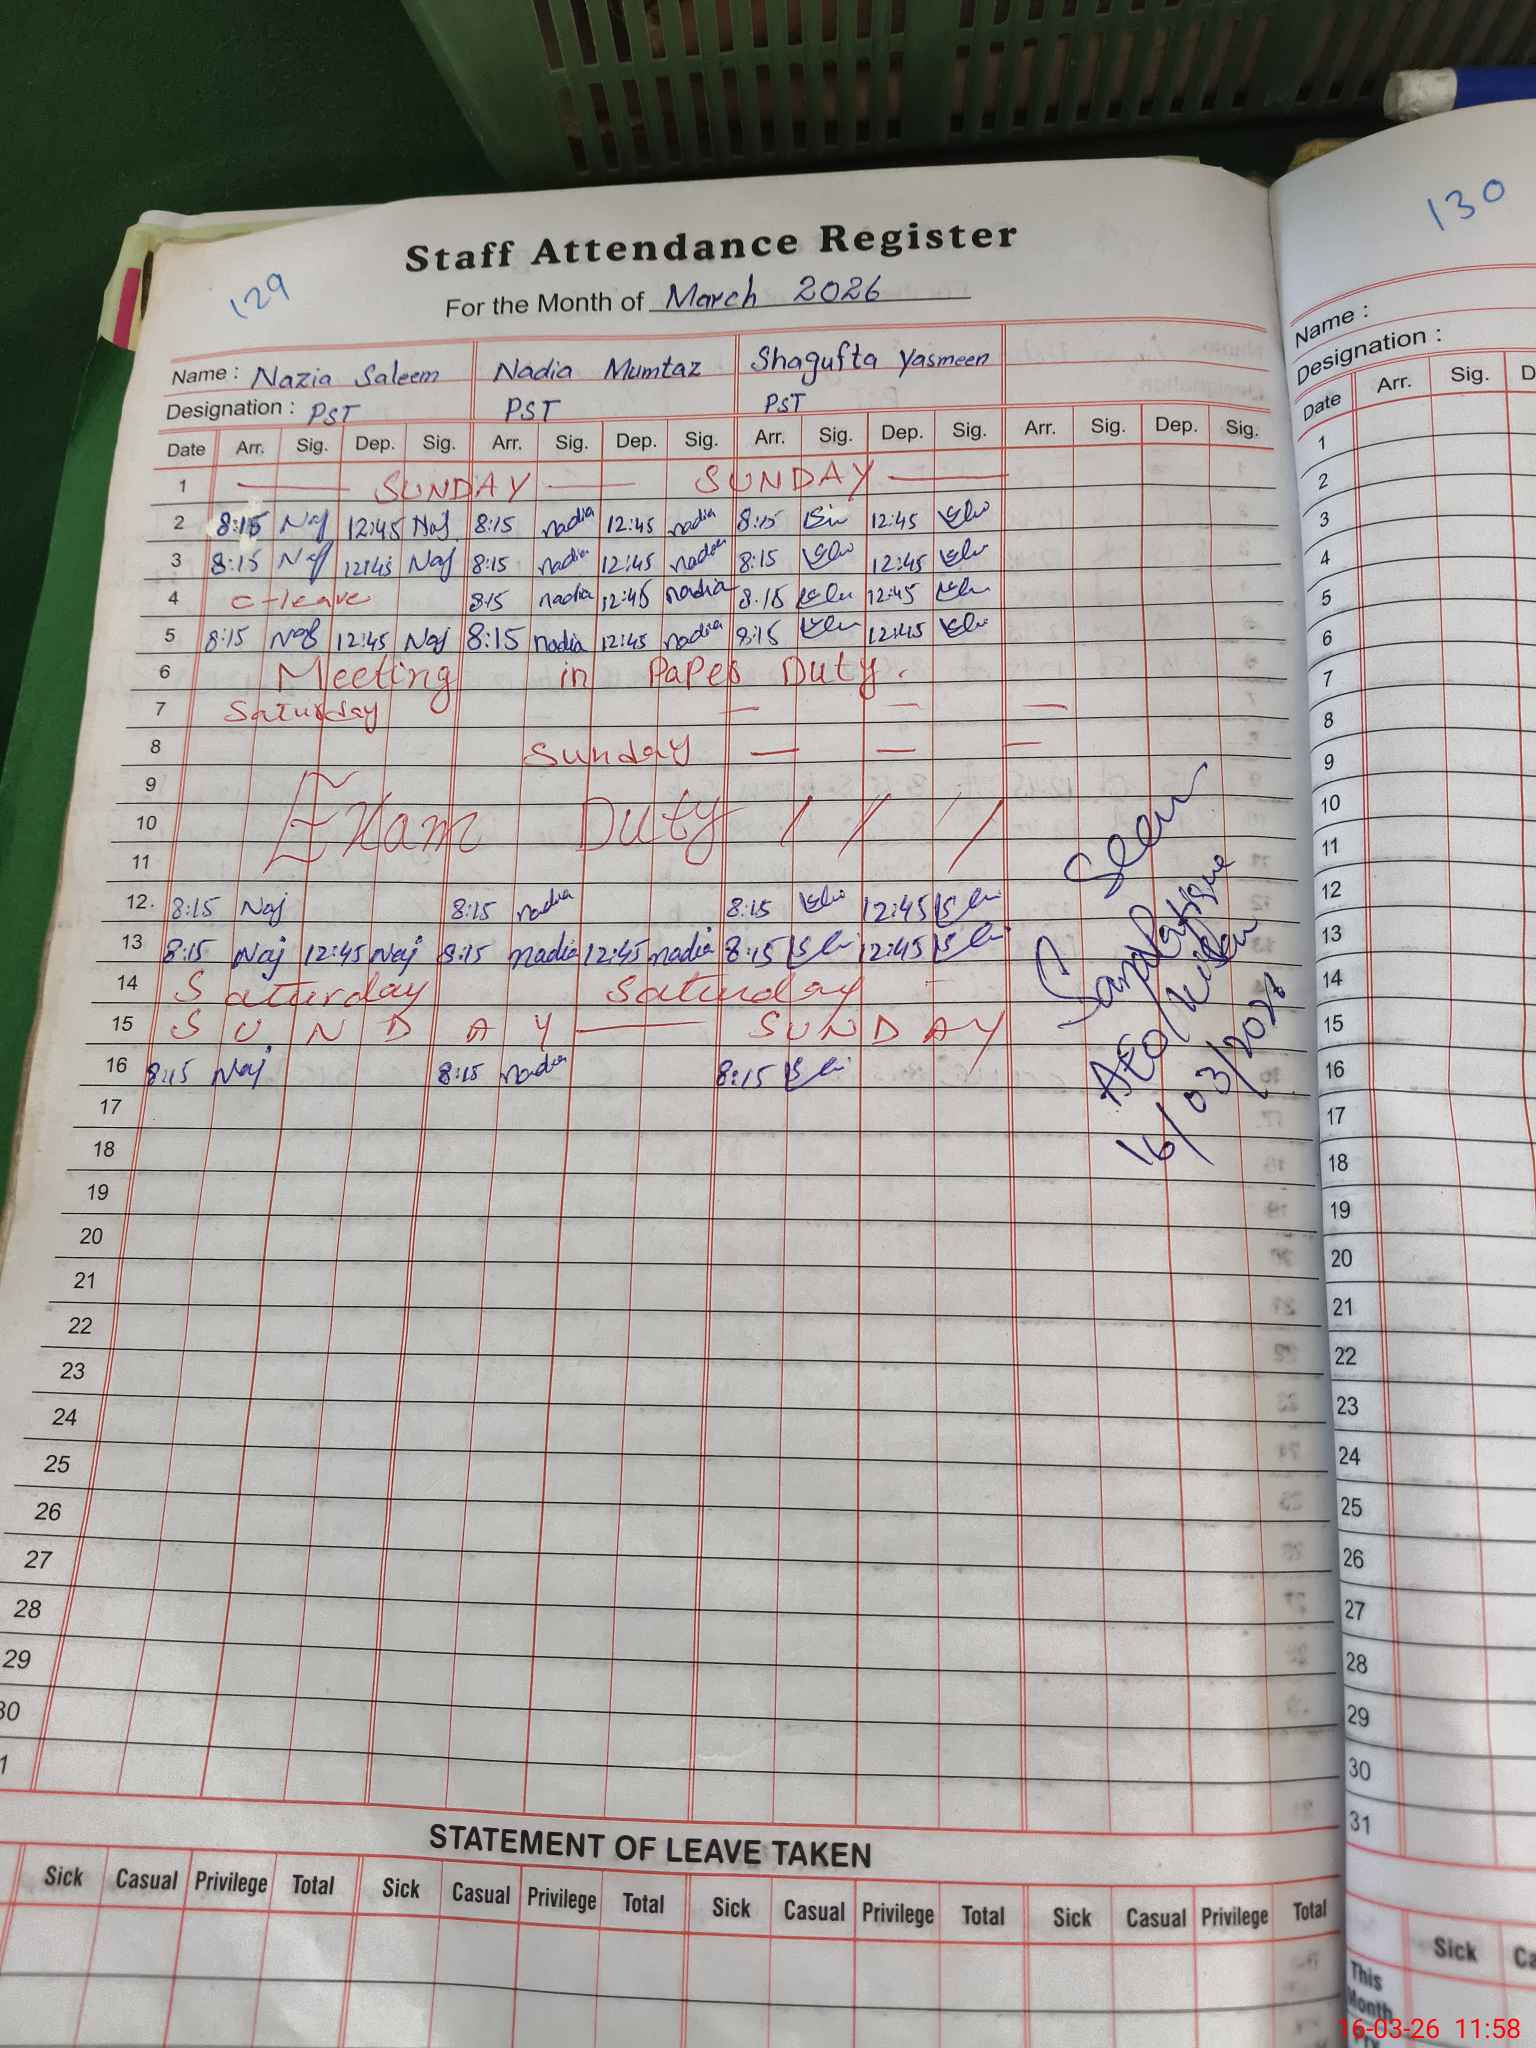 129
130
Staff Attendance Register
For the Month of March 2026
Name : Nazia Saleem Nadia Mumtaz Shagufta Yasmeen
Designation : PST PST PST
Date Arr. Sig. Dep. Sig. Arr. Sig. Dep. Sig. Arr. Sig. Dep. Sig. Arr. Sig. Dep. Sig.
1 SUNDAY SUNDAY
2 8:15 Naj 12:45 Naj 8:15 nadia 12:45 nadia 8:15 12:45
3 8:15 Naj 12:45 Naj 8:15 nadia 12:45 nadia 8:15 12:45
4 c-leave 8:15 nadia 12:45 nadia 8:15 12:45
5 8:15 Naj 12:45 Naj 8:15 nadia 12:45 nadia 8:15 12:45
6 Meeting in Paper Duty.
7 Saturday
8 Sunday
9
10 Exam Duty
11
12. 8:15 Naj 8:15 nadia 8:15 12:45
13 8:15 Naj 12:45 Naj 8:15 nadia 12:45 nadia 8:15 12:45
14 Saturday Saturday
15 SUNDAY SUNDAY
16 8:15 Naj 8:15 nadia 8:15
17
18
19
20
21
22
23
24
25
26
27
28
29
30
1
Seen
AEO
16/03/2026
STATEMENT OF LEAVE TAKEN
Sick Casual Privilege Total Sick Casual Privilege Total Sick Casual Privilege Total Sick Casual Privilege Total
Name :
Designation :
Date Arr. Sig. D
1
2
3
4
5
6
7
8
9
10
11
12
13
14
15
16
17
18
19
20
21
22
23
24
25
26
27
28
29
30
31
Sick Ca
This
Month
16-03-26 11:58